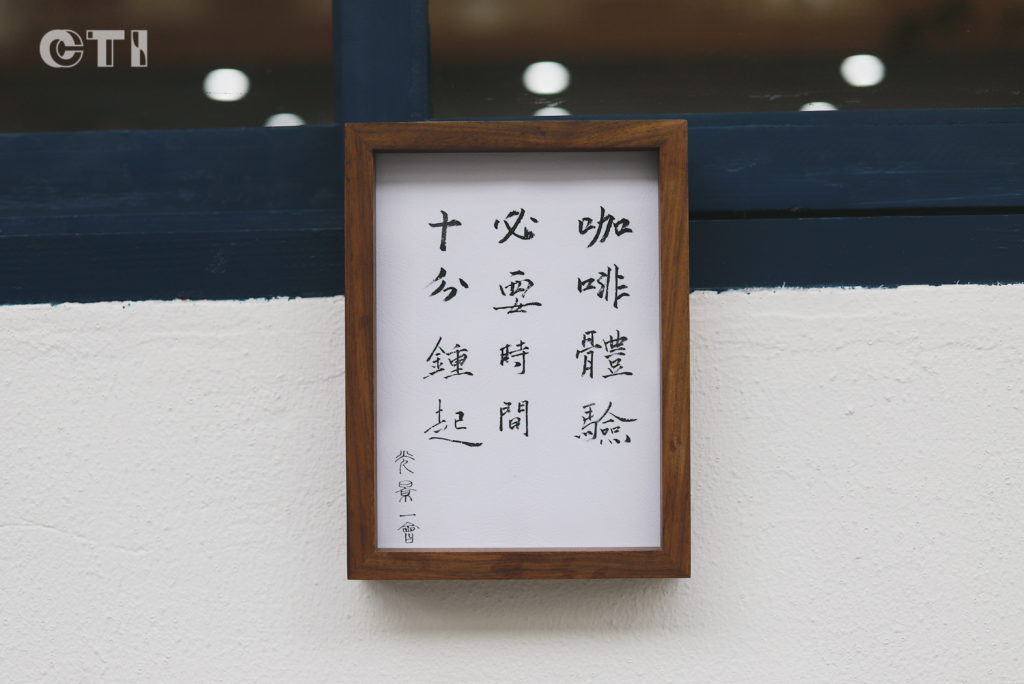 CTI
咖啡體驗
必要時間
十分鍾起
光景一會